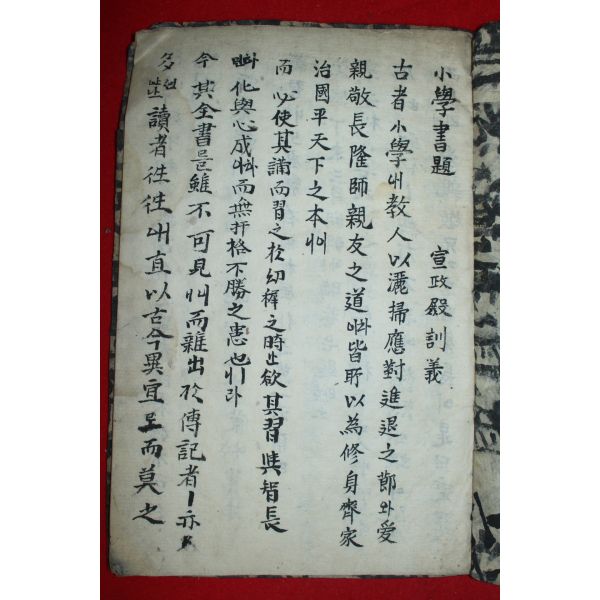 小學書題 宣政殿訓義
古者小學애教人以灑掃應對進退之節와愛
親敬長隆師親友之道 皆所以為修身齊家
治國平天下之本
而必使其講而習之於幼穉之時 欲其習與智長
化與心成 而無扞格不勝之患也 라
今其全書를雖不可見 而雜出於傳記者ㅣ亦
多 讀者徃徃애直以古今異宜로而莫之